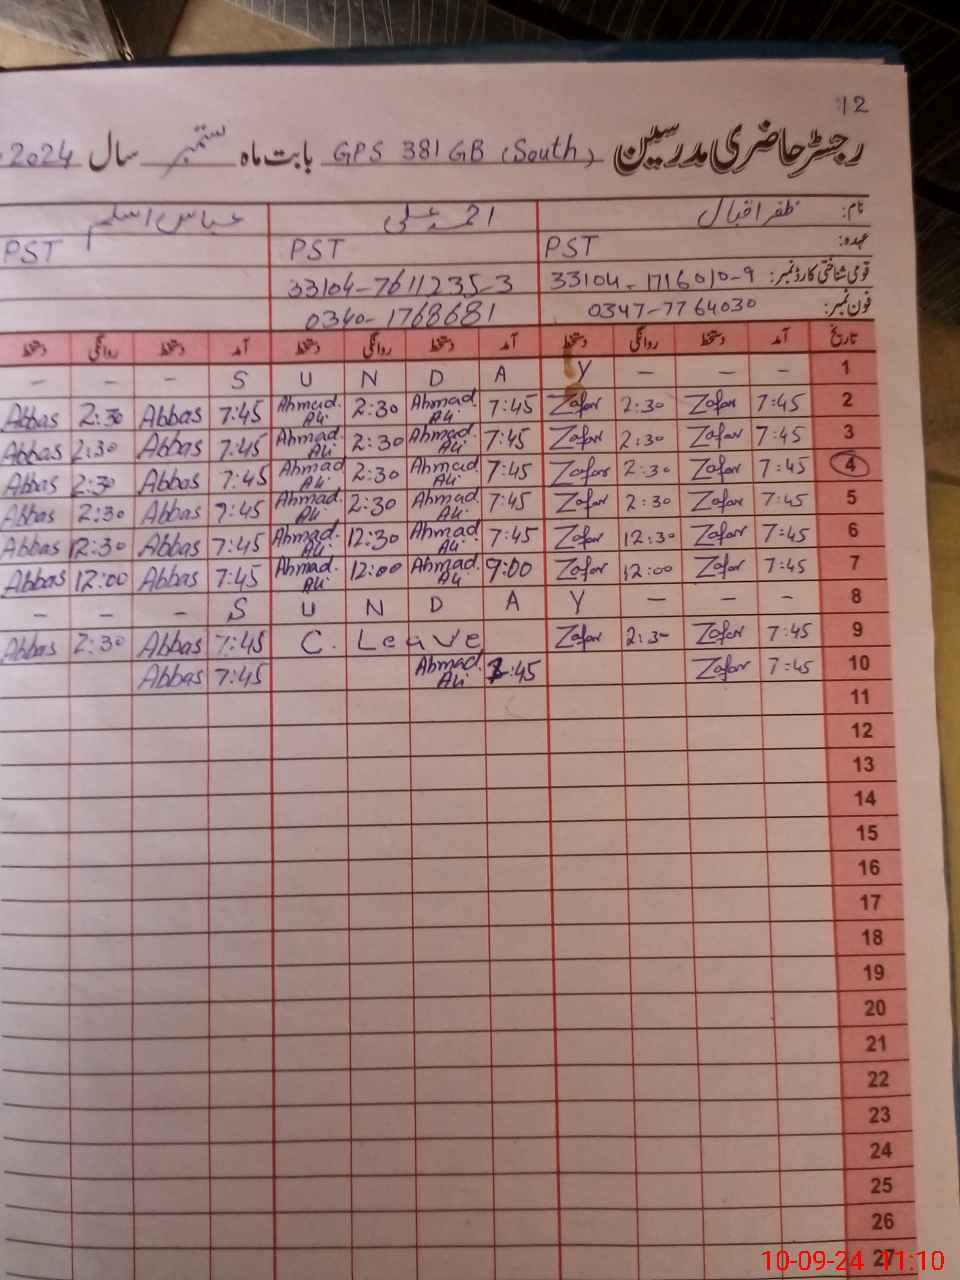 12
رجسٹر حاضری مدرسین GPS 381 GB (South) بابت ماہ ستمبر سال 2024
نام: ظفر اقبال احمد علی عباس اسلم
عہدہ: PST PST PST
قومی شناختی کارڈ نمبر: 33104-1716010-9 33104-7611235-3
فون نمبر: 0347-7764030 0340-1768681
تاریخ آمد دستخط روانگی دستخط آمد دستخط روانگی دستخط آمد دستخط روانگی دستخط
- - - S U N D A Y - - - 1
Abbas 2:30 Abbas 7:45 Ahmad Ali 2:30 Ahmad Ali 7:45 Zafar 2:30 Zafar 7:45 2
Abbas 2:30 Abbas 7:45 Ahmad Ali 2:30 Ahmad Ali 7:45 Zafar 2:30 Zafar 7:45 3
Abbas 2:30 Abbas 7:45 Ahmad Ali 2:30 Ahmad Ali 7:45 Zafar 2:30 Zafar 7:45 4
Abbas 2:30 Abbas 7:45 Ahmad Ali 2:30 Ahmad Ali 7:45 Zafar 2:30 Zafar 7:45 5
Abbas 12:30 Abbas 7:45 Ahmad Ali 12:30 Ahmad Ali 7:45 Zafar 12:30 Zafar 7:45 6
Abbas 12:00 Abbas 7:45 Ahmad Ali 12:00 Ahmad Ali 9:00 Zafar 12:00 Zafar 7:45 7
- - - S U N D A Y - - - 8
Abbas 2:30 Abbas 7:45 C. Leave Zafar 2:30 Zafar 7:45 9
Abbas 7:45 Ahmad Ali 7:45 Zafar 7:45 10
11
12
13
14
15
16
17
18
19
20
21
22
23
24
25
26
27
10-09-24 11:10